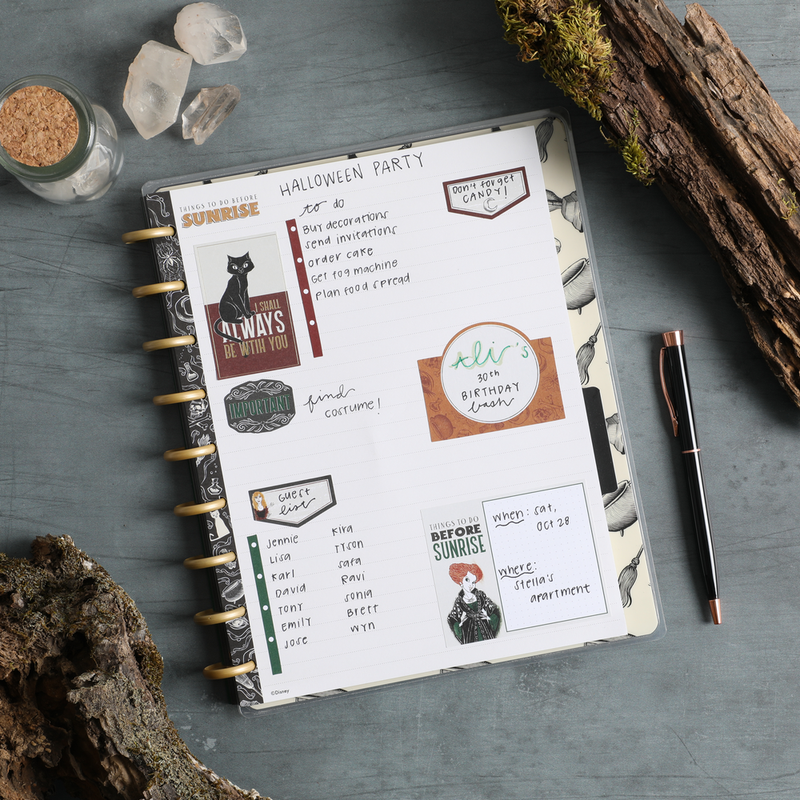 HALLOWEEN PARTY
THINGS TO DO BEFORE
SUNRISE
to do
Buy decorations
send invitations
order cake
Get fog machine
Plan food spread
Don't forget
CANDY!
I SHALL
ALWAYS
BE WTIH YOU
IMPORTANT
find
costume!
Ali's
30th
BIRTHDAY
bash
GUEST
list
Jennie
Lisa
Karl
David
Tony
Emily
Jose
Kira
Tyson
Sara
Ravi
Sonia
Brett
Wyn
THINGS TO DO
BEFORE
SUNRISE
when: Sat,
Oct 28
where:
Stella's
apartment
©Disney